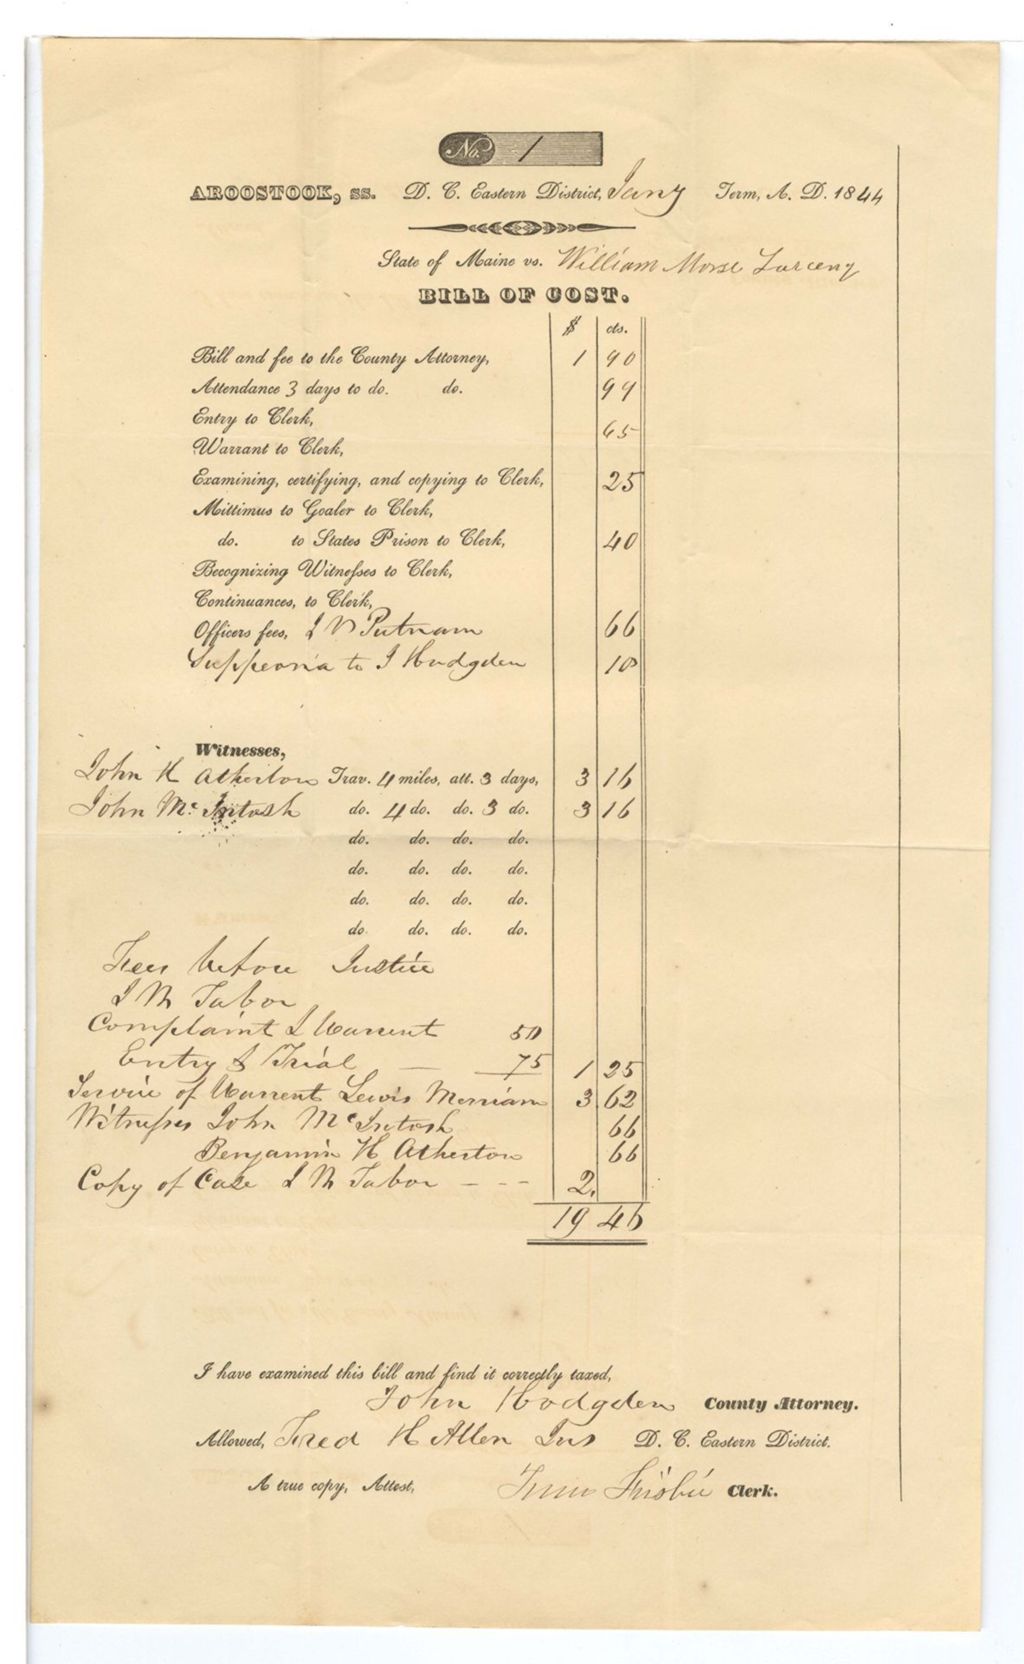 No. 1
AROOSTOOK, ss. D. C. Eastern District, Jany Term, A. D. 1844
State of Maine vs. William Morse Larceny
BILL OF COST.
$ cts.
Bill and fee to the County Attorney, 1 90
Attendance 3 days to do. do. 99
Entry to Clerk,
65
Warrant to Clerk,
Examining, certifying, and copying to Clerk, 25
Mittimus to Goaler to Clerk,
do. to States Prison to Clerk, 40
Recognizing Witnesses to Clerk,
Continuances, to Clerk,
Officers fees, J V Putnam 66
to J Hodgden 10
Witnesses,
John H Atherton Trav. 4 miles, att. 3 days, 3 16
John McIntosh do. 4 do. do. 3 do. 3 16
do. do. do. do.
do. do. do. do.
do. do. do. do.
do. do. do. do.
Fees before Justice
Tabor
Complaint & Warrent 50
Entry & Trial — 75 1 25
Service of Warrent Lewis Merriam 3 62
Witnesses John McIntosh 66
Benjamin H Atherton 66
Copy of Case Tabor - - - 2.
19 46
I have examined this bill and find it correctly taxed,
John Hodgden County Attorney.
Allowed, Fred H Allen Jus D. C. Eastern District.
A true copy, Attest, Frisbie Clerk.